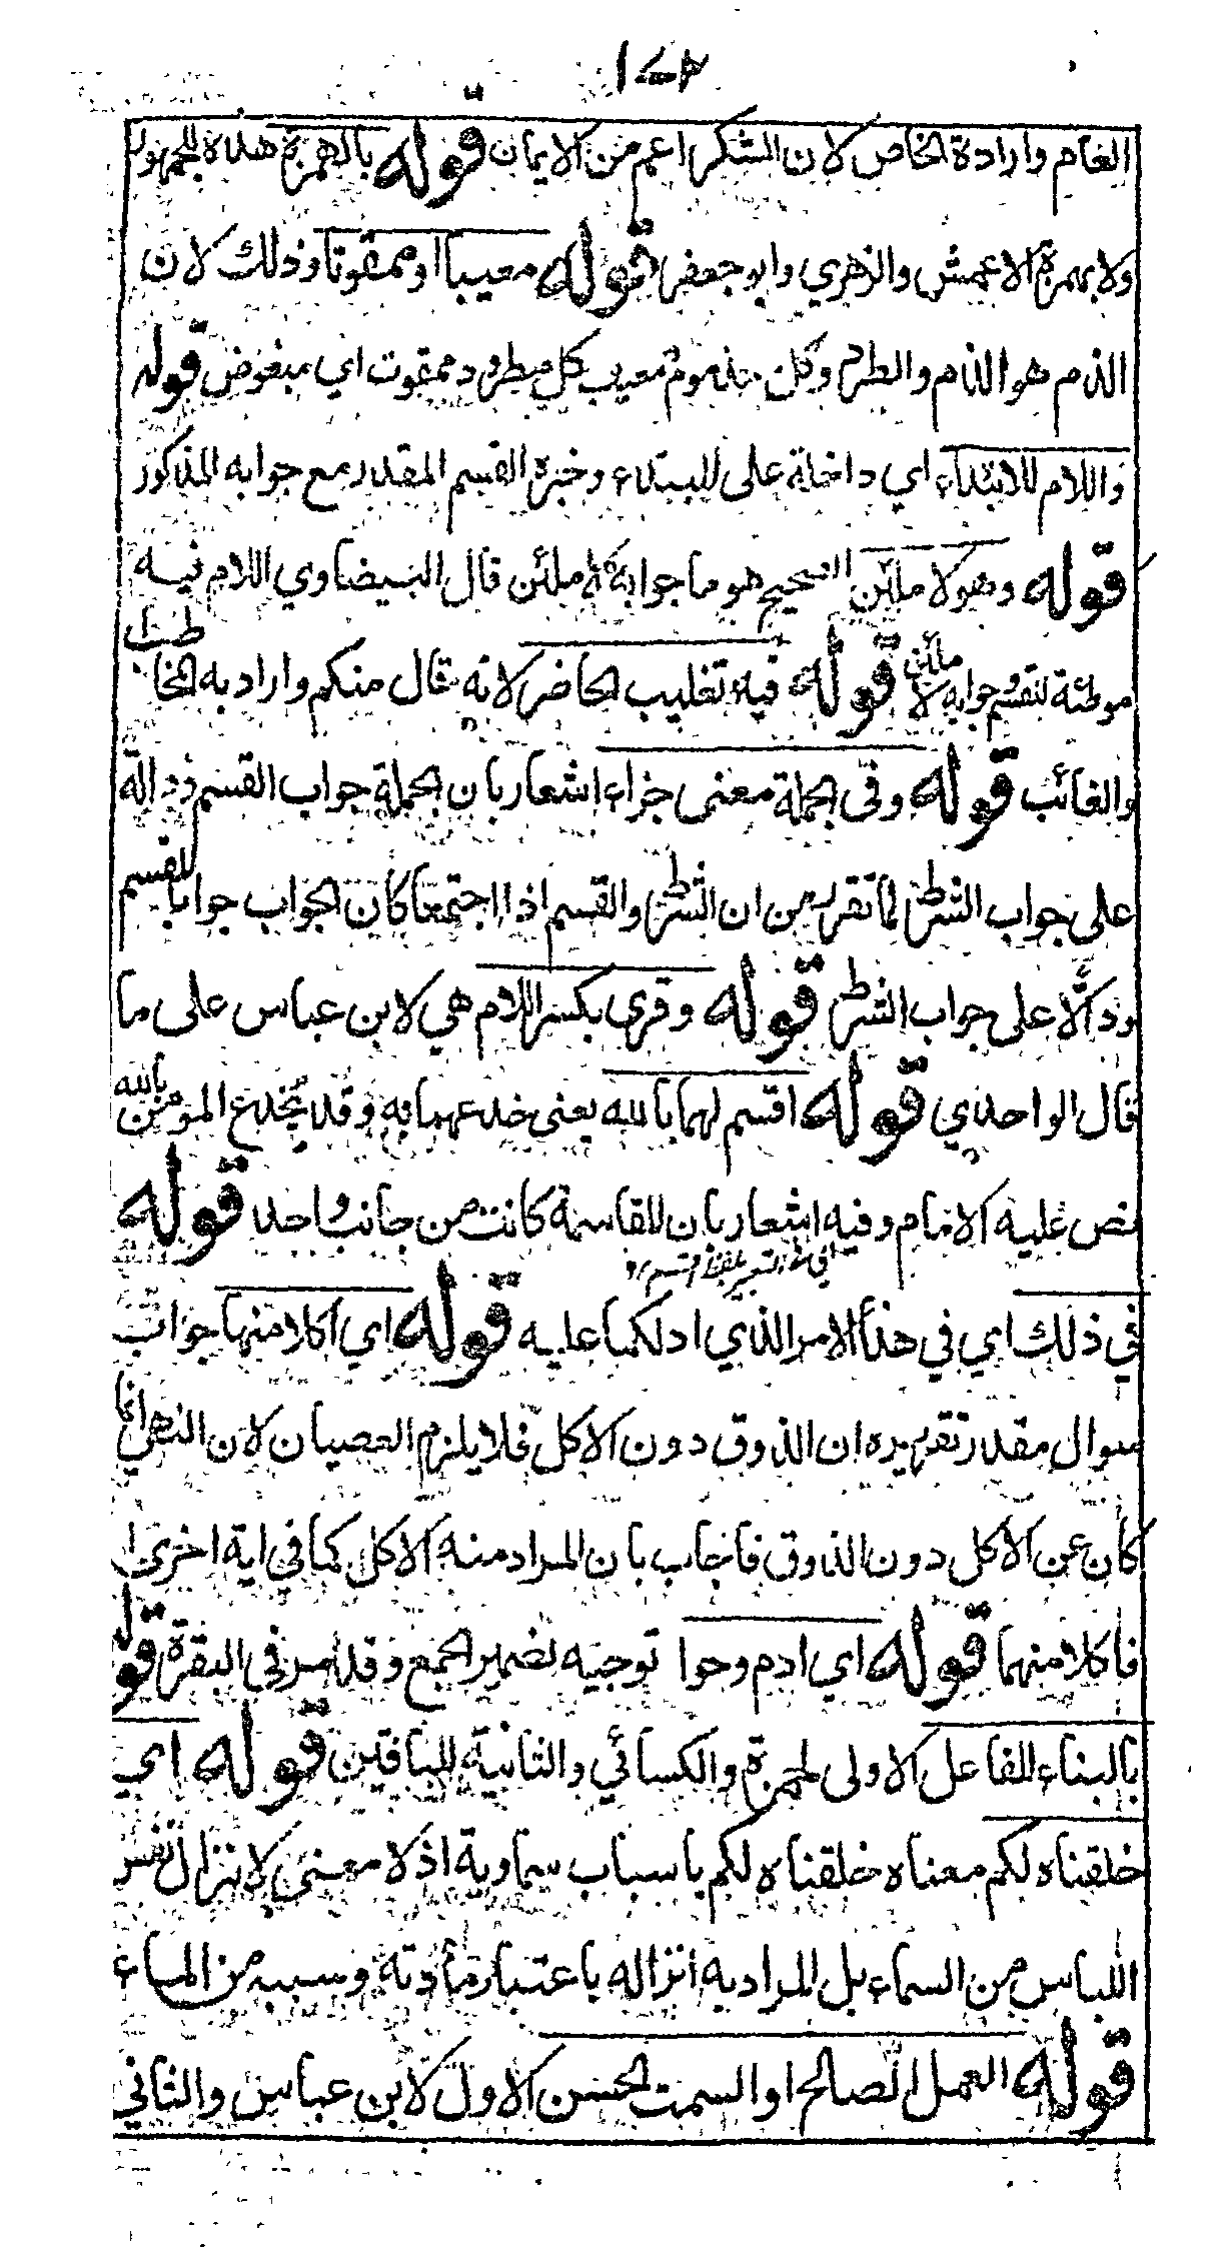 ١٧٢
العام وارادة الخاص لان الشكر اعم من الايمان قوله بالهمزة هذه للجمهور
ولا بهمزة الاعمش والزهري وابو جعفر قوله معيبا او ممقوتا وذلك لان
الذم هو الذام والطرد وكل مذموم معيب كل مطرود ممقوت اي مبغوض قوله
واللام للابتداء اي داخلة على المبتدء وخبره القسم المقدر مع جوابه المذكور
قوله وهو لاملئن الصحيح هو ما جوابه لاملئن قال البيضاوي اللام فيه
موطئة للقسم وجوابه لاملئن قوله فيه تغليب الحاضر لانه قال منكم واراد به المخاطب
والغائب قوله وفي الجملة معنى جزاء اشعار بان الجملة جواب القسم دالة
على جواب الشرط لما تقرر من ان الشرط والقسم اذا اجتمعا كان الجواب جوابا للقسم
ودالا على جواب الشرط قوله وقرئ بكسر اللام هي لابن عباس على ما
قال الواحدي قوله اقسم لهما بالله يعني خدعهما به وقد يخدع المومن بالله
نص عليه الامام وفيه اشعار بان المقاسمة كانت من جانب واحد قوله
في ذلك اي في هذا الامر الذي ادلكما عليه قوله اي اكلا منها جواب
سوال مقدر تقريره ان الذوق دون الاكل فلا يلزم العصيان لان النهي انما
كان عن الاكل دون الذوق فاجاب بان المراد منه الاكل كما في اية اخرى
فاكلا منهما قوله اي ادم وحوا توجيه لضمير الجمع وقد مر في البقرة قوله
بالبناء للفاعل الاولى لحمزة والكسائي والثانية للباقين قوله اي
خلقناه لكم معناه خلقناه لكم باسباب سماوية اذ لا معنى لانزال نفس
اللباس من السماء بل المراد به انزاله باعتبار مادته وسببه من الماء
قوله العمل الصالح او السمت الحسن الاول لابن عباس والثاني